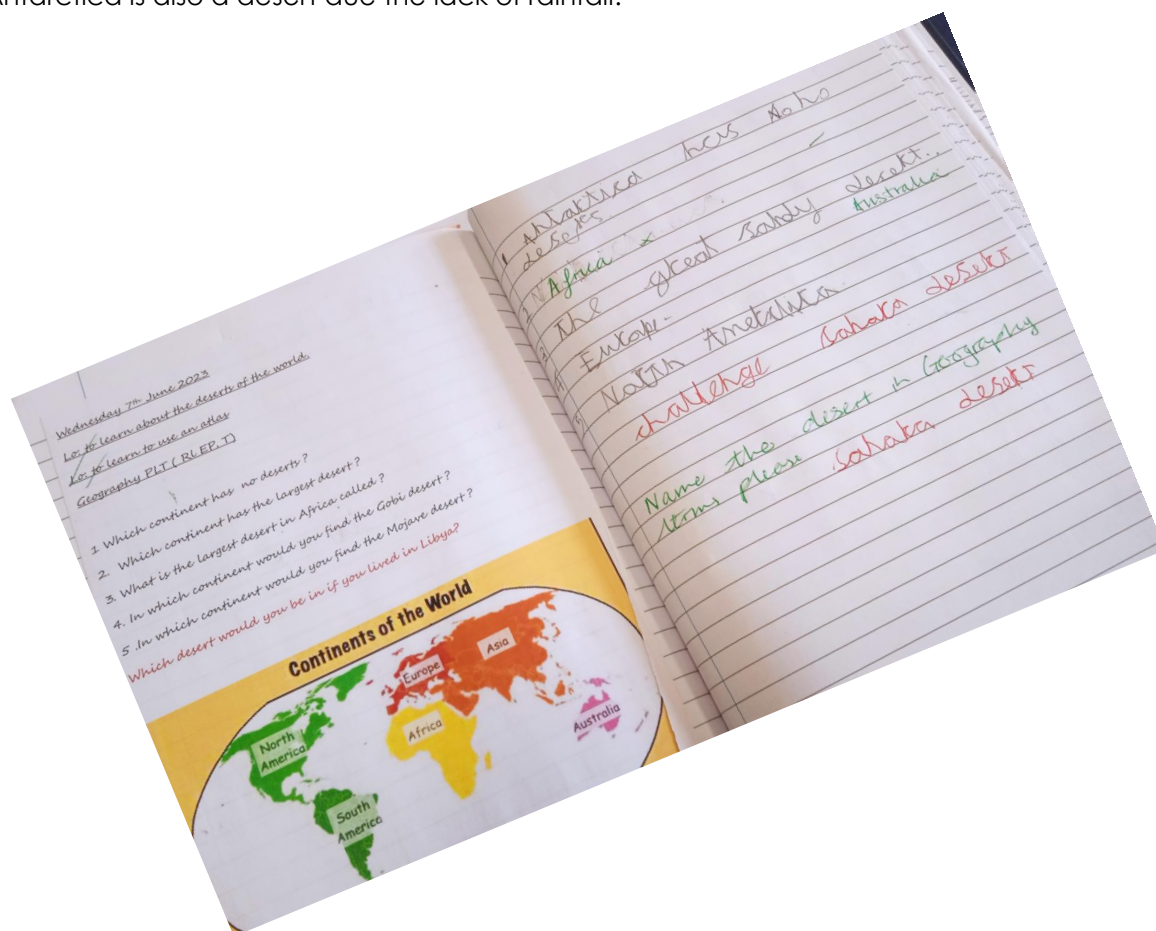 Antarctica is also a desert due the lack of rainfall.
Wednesday 7th June 2023
Lo: to learn about the deserts of the world.
Lo: to learn to use an atlas
Geography PLT ( RL EP, T)
1 Which continent has no deserts?
2. Which continent has the largest desert?
3. What is the largest desert in Africa called?
4. In which continent would you find the Gobi desert?
5 .In which continent would you find the Mojave desert?
Which desert would you be in if you lived in Libya?
Continents of the World
North
America
South
America
Europe
Asia
Africa
Australia
1 has
Africa x
The great sandy desert..
Australia
Europe.
North
challenge sahara desert
Name the desert in Geography
terms please sahara desert